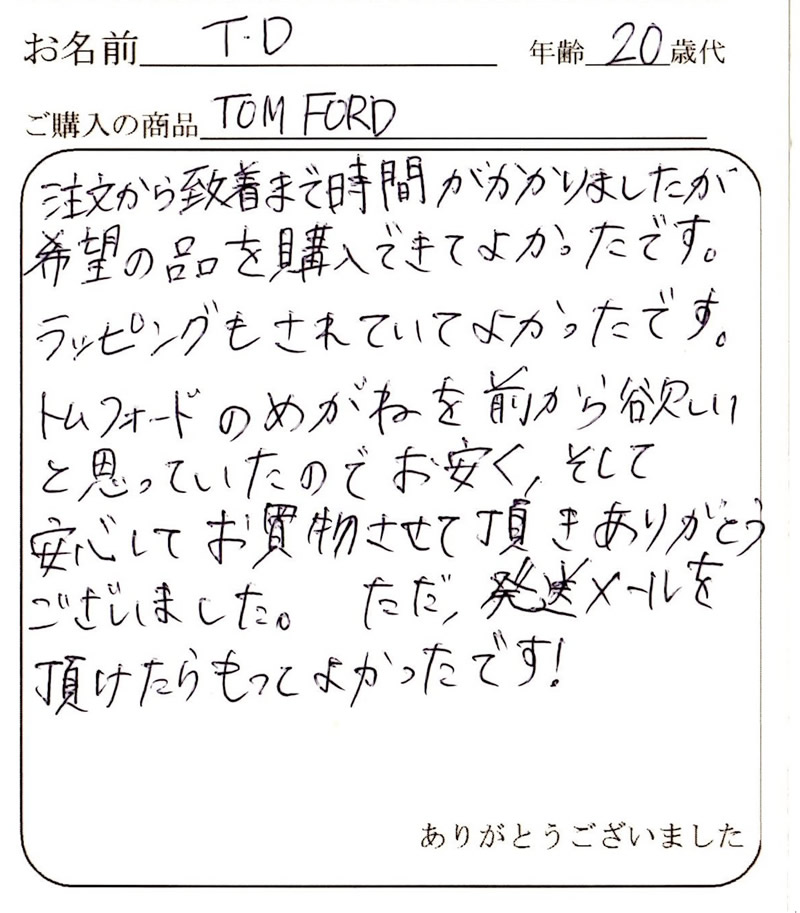 お名前 T.D 年齢 20 歳代
ご購入の商品 TOM FORD
注文から致着まで時間がかかりましたが
希望の品を購入できてよかったです。
ラッピングもされていてよかったです。
トムフォードのめがねを前から欲しい
と思っていたのでお安く、そして
安心してお買物させて頂きありがとう
ございました。 ただ、発送メールを
頂けたらもってよかったです!
ありがとうございました